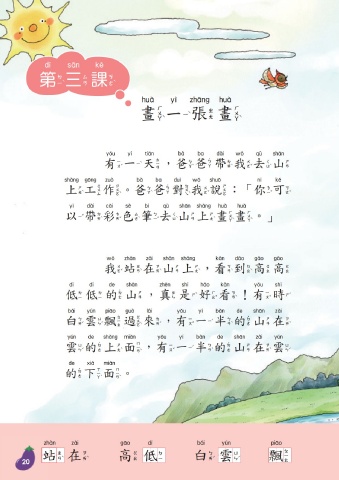 dì sān kè
第三課
huà yì zhāng huà
畫一張畫
yǒu yì tiān bà ba dài wǒ qù shān
有一天，爸爸帶我去山
shàng gōng zuò bà ba duì wǒ shuō nǐ kě
上工作。爸爸對我說：「你可
yǐ dài cǎi sè bǐ qù shān shàng huà huà
以帶彩色筆去山上畫畫。」
wǒ zhàn zài shān shàng kàn dào gāo gāo
我站在山上，看到高高
dī dī de shān zhēn shì hǎo kàn yǒu shí
低低的山，真是好看！有時
bái yún piāo guò lái yǒu yí bàn de shān zài
白雲飄過來，有一半的山在
yún de shàng miàn yǒu yí bàn de shān zài yún
雲的上面，有一半的山在雲
de xià miàn
的下面。
zhàn zài gāo dī bái yún piāo
站在 高低 白雲 飄
20